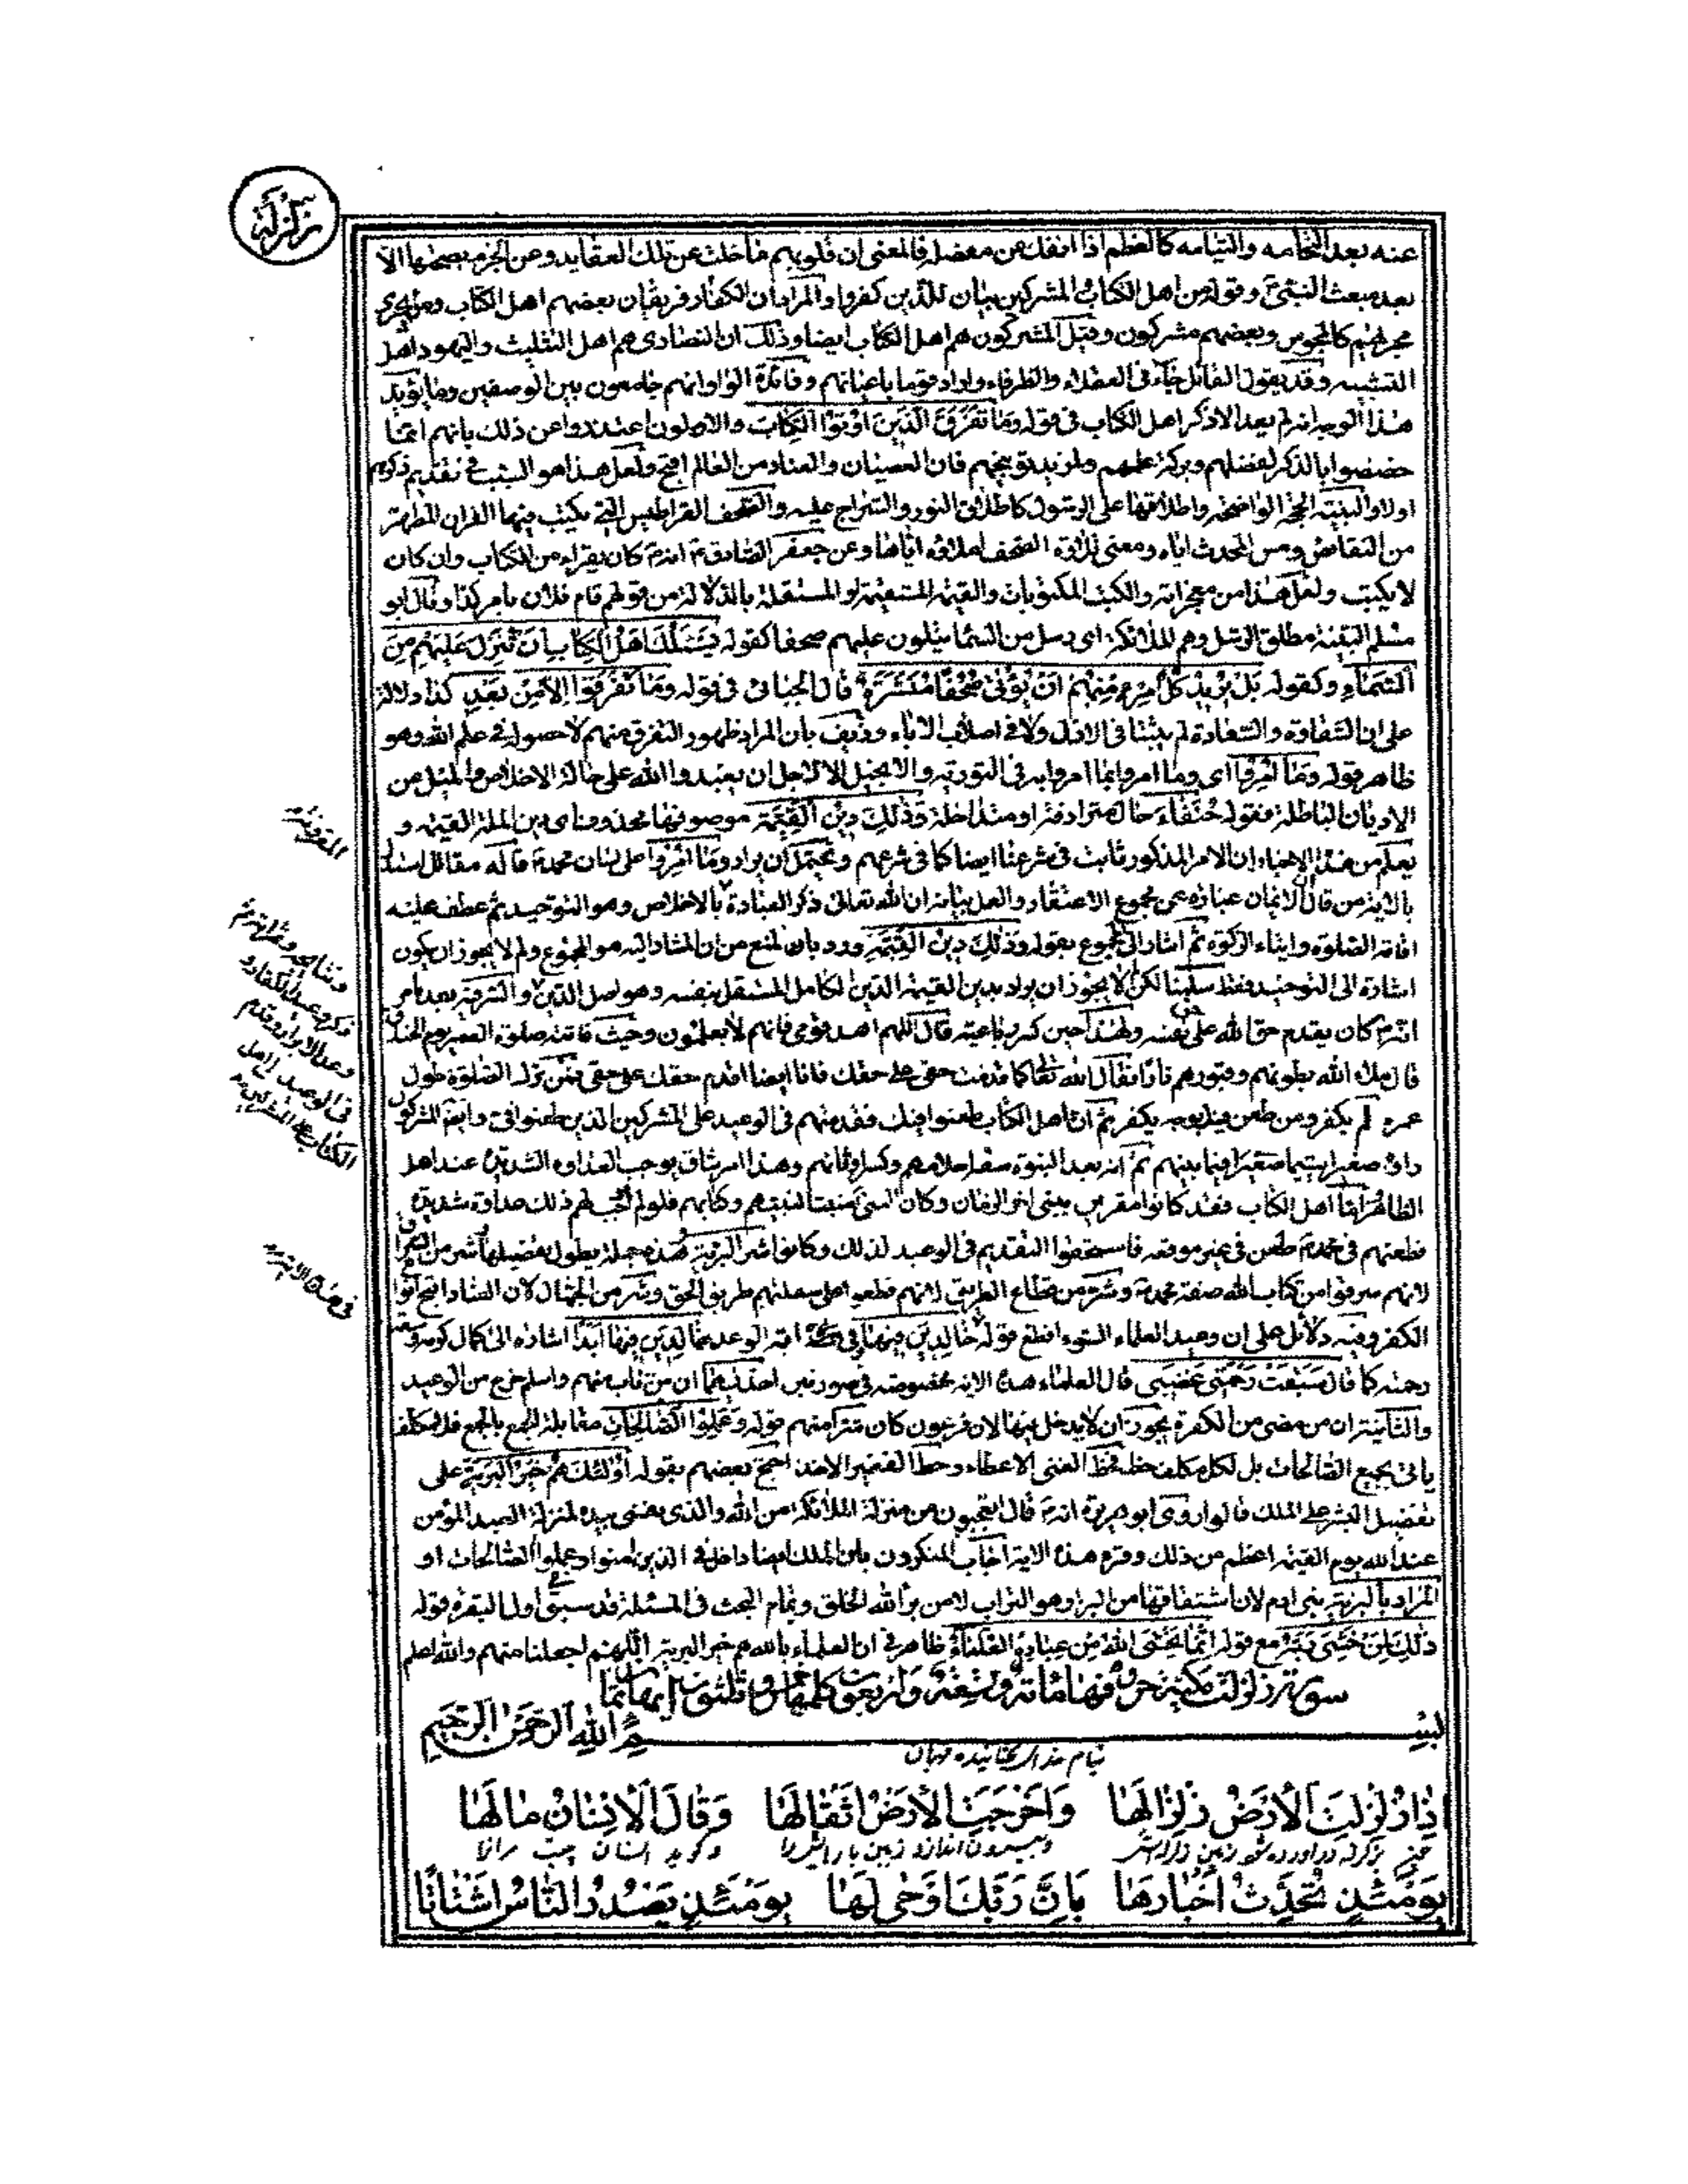 زلزلة
عنه بعد التحامه والتيامه كالعظم اذا انفك من مفصله فالمعنى ان قلوبهم ما خلت عن تلك العقايد وعن الجزم بصحتها الا
بعد مبعث النبى وقوله من اهل الكتاب والمشركين بيان للذين كفروا والمراد ان الكفار فريقان بعضهم اهل الكتاب ومن يجرى
مجريهم كالمجوس وبعضهم مشركون وقيل المشركون هم اهل الكتاب ايضا وذلك ان النصارى هم اهل التثليث واليهود اهل
التشبيه وقد يقول القائل جاءنى العقلاء والظرفاء واراد قوما باعيانهم وفائدة الواو انهم جامعون بين الوصفين ومما يؤيد
هذا الوجه انه لم يعد الا ذكر اهل الكتاب فى قوله وَمَا تَفَرَّقَ الَّذِينَ أُوتُوا الْكِتَابَ والاولون اعتذروا عن ذلك بانهم انما
خصصوا بالذكر لفضلهم وبركة علمهم ولمزيد توبيخهم فان العصيان والعناد من العالم اقبح ولعل هذا هو السبب فى تقديم ذكرهم
اولا والبينة الحجة الواضحة واطلاقها على الرسول كاطلاق النور والسراج عليه والصحف القراطيس التى يكتب فيها القران المطهر
من النقائص ومس المحدث اياه ومعنى تلاوة الصحف املاؤه اياها وعن جعفر الصادق انه كان يقرا من الكتاب وان كان
لا يكتب ولعل هذا من معجزاته والكتب المكتوبات والقيمة المستقيمة او المستقلة بالدلالة من قولهم قام فلان بامر كذا وقال ابو
مسلم البينة مطلق الرسل وهم الملائكة اى رسل من السماء يتلون عليهم صحفا كقوله يَسْئَلُكَ أَهْلُ الْكِتَابِ أَنْ تُنَزِّلَ عَلَيْهِمْ مِنَ
السَّمَاءِ وكقوله بَلْ يُرِيدُ كُلُّ امْرِئٍ مِنْهُمْ أَنْ يُؤْتَىٰ صُحُفًا مُنَشَّرَةً قال الجبائى فى قوله وَمَا تَفَرَّقُوا إِلَّا مِنْ بَعْدِ كذا دلالة
على ان الشقاوة والسعادة لم يثبتا فى الازل ولا فى اصلاب الاباء وزيف بان المراد ظهور التفرق منهم لا حصوله فى علم الله وهو
ظاهر قوله وَمَا أُمِرُوا اى وما امروا بما امروا به فى التورية والانجيل الا لاجل ان يعبدوا الله على حالة الاخلاص والميل من
الاديان الباطلة فقوله حُنَفَاءَ حال مترادفة او متداخلة وَذَٰلِكَ دِينُ الْقَيِّمَةِ موصوفها محذوف اى دين الملة القيمة و
يعلم من هذا الاخبار ان الامر المذكور ثابت فى شرعنا ايضا كما فى شرعهم ويحتمل ان يراد وَمَا أُمِرُوا على لسان محمد قاله مقاتل استدل
بالاية من قال الايمان عبارة عن مجموع الاعتقاد والعمل بيانه ان الله تعالى ذكر العبادة بالاخلاص وهو التوحيد ثم عطف عليه
اقامة الصلوة وايتاء الزكوة ثم اشار الى المجموع بقوله وَذَٰلِكَ دِينُ الْقَيِّمَةِ ورد بان المنع من ان المشار اليه هو المجموع ولم لا يجوز ان يكون
اشارة الى التوحيد فقط سلمنا لكن لا يجوز ان يراد بدين القيمة الدين الكامل المستقل بنفسه وهو اصل الدين
انه كان يقدم حق الله على حق نفسه ولهذا حين كسر رباعيته قال اللهم اهد قومى فانهم لا يعلمون وحيث فاتته صلوة العصر يوم الخندق
قال ملا الله بطونهم وقبورهم نارا فقال الله تعالى كما قدمت حقى على حقك فانا ايضا اقدم حقك على حقى فمن ترك الصلوة طول
عمره لم يكفر ومن طعن فيك بوجه يكفر ثم ان اهل الكتاب طعنوا فيك فقدمتهم فى الوعيد على المشركين الذين طعنوا فى وايضا المشركون
راوه صغيرا يتيما فيما بينهم ثم انه بعد النبوة سفه احلامهم وكسر اوثانهم وهذا امر شاق يوجب العداوة الشديدة عند اهل
الظاهر واما اهل الكتاب فقد كانوا مقرين بنبى اخر الزمان وكان النبى مثبتا لنبيهم وكتابهم فلم يوجب لهم ذلك عداوة شديدة
فطعنهم فى محمد طعن فى غير موقعه فاستحقوا التقديم فى الوعيد لذلك وكانوا شر البرية وهذه جملة يطول تفصيلها شر من السراق
لانهم سرقوا من كتاب الله صفة محمد وشر من قطاع الطريق لانهم قطعوا على سفلتهم طريق الحق وشر من الجهال لان العناد اقبح انواع
الكفر وفيه دلائل على ان وعيد العلماء السوء افظع قوله خَالِدِينَ فِيهَا فى اية الوعد خَالِدِينَ فِيهَا أَبَدًا اشارة الى كمال كرمه وسعة
رحمته كما قال سَبَقَتْ رَحْمَتِي غَضَبِي قال العلماء هذه الاية مخصوصة فى صورتين احديهما ان من تاب منهم واسلم خرج من الوعيد
والثانية ان من مضى من الكفرة يجوز ان لا يدخل فيها لان فرعون كان شرا منهم قوله وَعَمِلُوا الصَّالِحَاتِ مقابلة الجمع بالجمع فلا مكلف
ياتى بجميع الصالحات بل لكل مكلف حظ فحظ الغنى الاعطاء وحظ الفقير الاخذ احتج بعضهم بقوله أُولَٰئِكَ هُمْ خَيْرُ الْبَرِيَّةِ على
تفضيل البشر على الملك قالوا روى ابو هريرة انه قال اتعجبون من منزلة الملائكة من الله والذى نفسى بيده لمنزلة العبد المؤمن
عند الله يوم القيمة اعظم من ذلك وقرء هذه الاية اجاب المنكرون بان الملك ايضا داخل فى الذين امنوا وعملوا الصالحات او
المراد بالبرية بنى ادم لان اشتقاقها من البرا وهو التراب لا من برأ الله الخلق وتمام البحث فى المسئلة قد سبق فى اول البقرة قوله
ذَٰلِكَ لِمَنْ خَشِيَ رَبَّهُ مع قوله إِنَّمَا يَخْشَى اللَّهَ مِنْ عِبَادِهِ الْعُلَمَاءُ ظاهر فى ان العلماء بالله هم خير البرية اللهم اجعلنا منهم والله اعلم
المقرونة
وعد الابرار وقدم
فى الوعيد اهل
الكتاب على المشركين
فى هذه الاية
سورة زلزلت مكية حروفها مائة وتسعة واربعون كلمها وثلثون ايها ثما
بِسْمِ اللَّهِ الرَّحْمَٰنِ الرَّحِيمِ
بنام خداى بخشاينده مهربان
ذَا زُلْزِلَتِ الْأَرْضُ زِلْزَالَهَا وَأَخْرَجَتِ الْأَرْضُ أَثْقَالَهَا وَقَالَ الْإِنْسَانُ مَا لَهَا
وبيرون اندازد زمين بارانش را وگويد انسان چيست مر انرا
يَوْمَئِذٍ تُحَدِّثُ أَخْبَارَهَا بِأَنَّ رَبَّكَ أَوْحَىٰ لَهَا يَوْمَئِذٍ يَصْدُرُ النَّاسُ أَشْتَاتًا